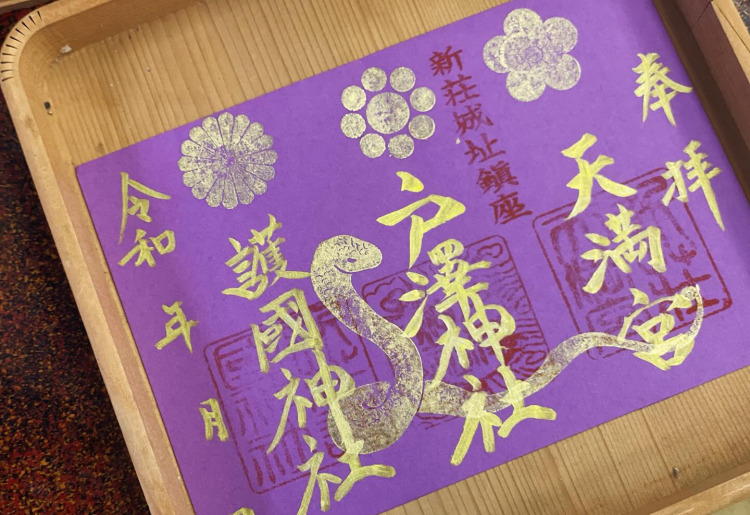 奉拝
新莊城址鎮座
天満宮
戸澤神社
護國神社
令和 年 月